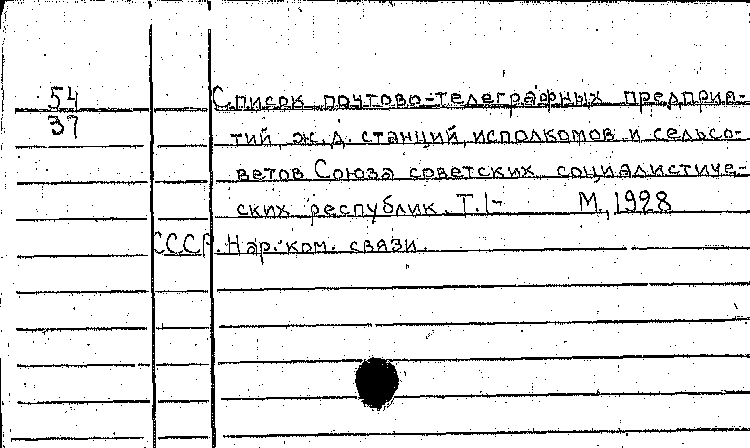 54 Список почтово-телеграфных предприя-
37 тий, ж.д. станций, исполкомов и сельсо-
ветов Союза советских социалистиче-
ских республик. Т.I- М., 1928
СССР. Нар. ком. связи.